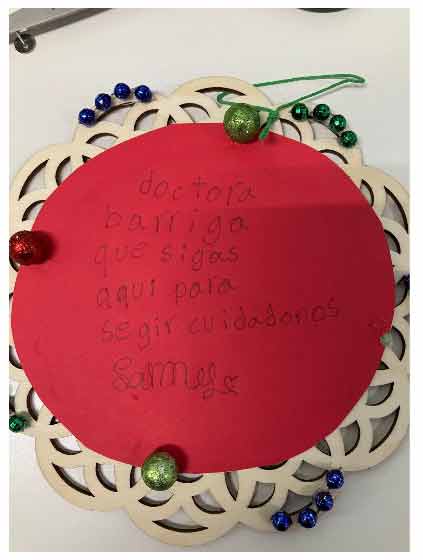 doctora
barriga
que sigas
aqui para
segir cuidadonos